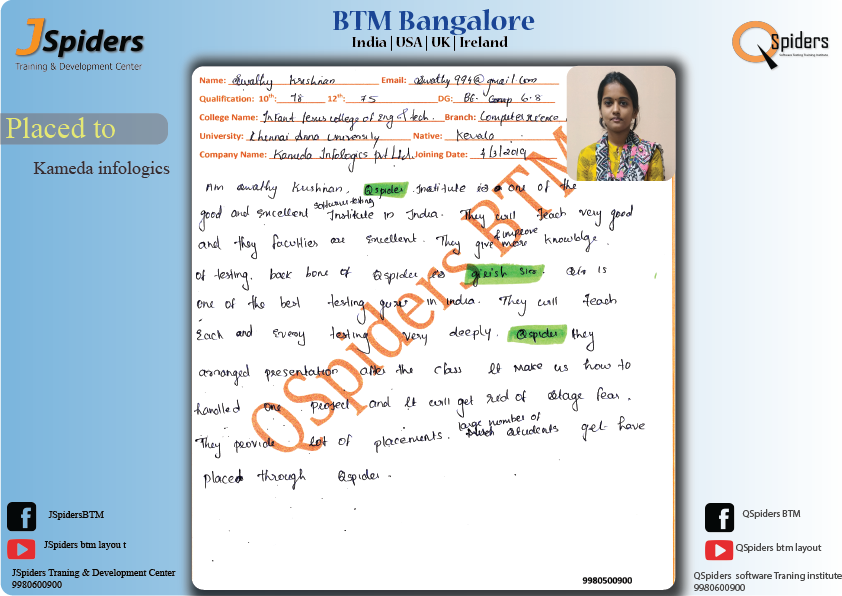 JSpiders
Training & Development Center
BTM Bangalore
India | USA | UK | Ireland
QSpiders
Software Testing Training Institute
Placed to
Kameda infologics
Name: Swathy Krishnan Email: Swathy994@gmail.com
Qualification: 10th: 78 12th: 75 DG: BE. Group 6.8
College Name: Infant Jesus college of Eng & tech. Branch: Computer science
University: Chennai Anna University Native: Kerala
Company Name: Kameda Infologics Pvt Ltd. Joining Date: 4/3/2019
Am swathy Krishnan, Qspider Institute is one of the
good and Excellent software testing Institute in India. They will Teach very good
and they faculties are Excellent. They give more & improve knowledge
of testing. back bone of Qspider is girish sir. is
one of the best testing guru in India. They will Teach
Each and Every testing very deeply. Qspider they
arranged presentation after the class It make us how to
handled one project and It will get rid of stage fear.
They provide lot of placements. large number of students get have
placed through Qspider.
QSpiders BTM
9980500900
JSpidersBTM
JSpiders btm layou t
JSpiders Traning & Development Center
9980600900
QSpiders BTM
QSpiders btm layout
QSpiders software Traning institute
9980600900